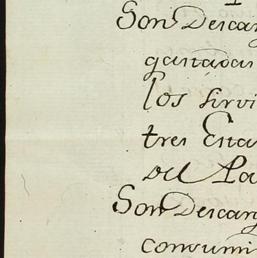 Son Descar
gastadas
los sirvi
tres Esta
del Pa
Son Descarg
consumi